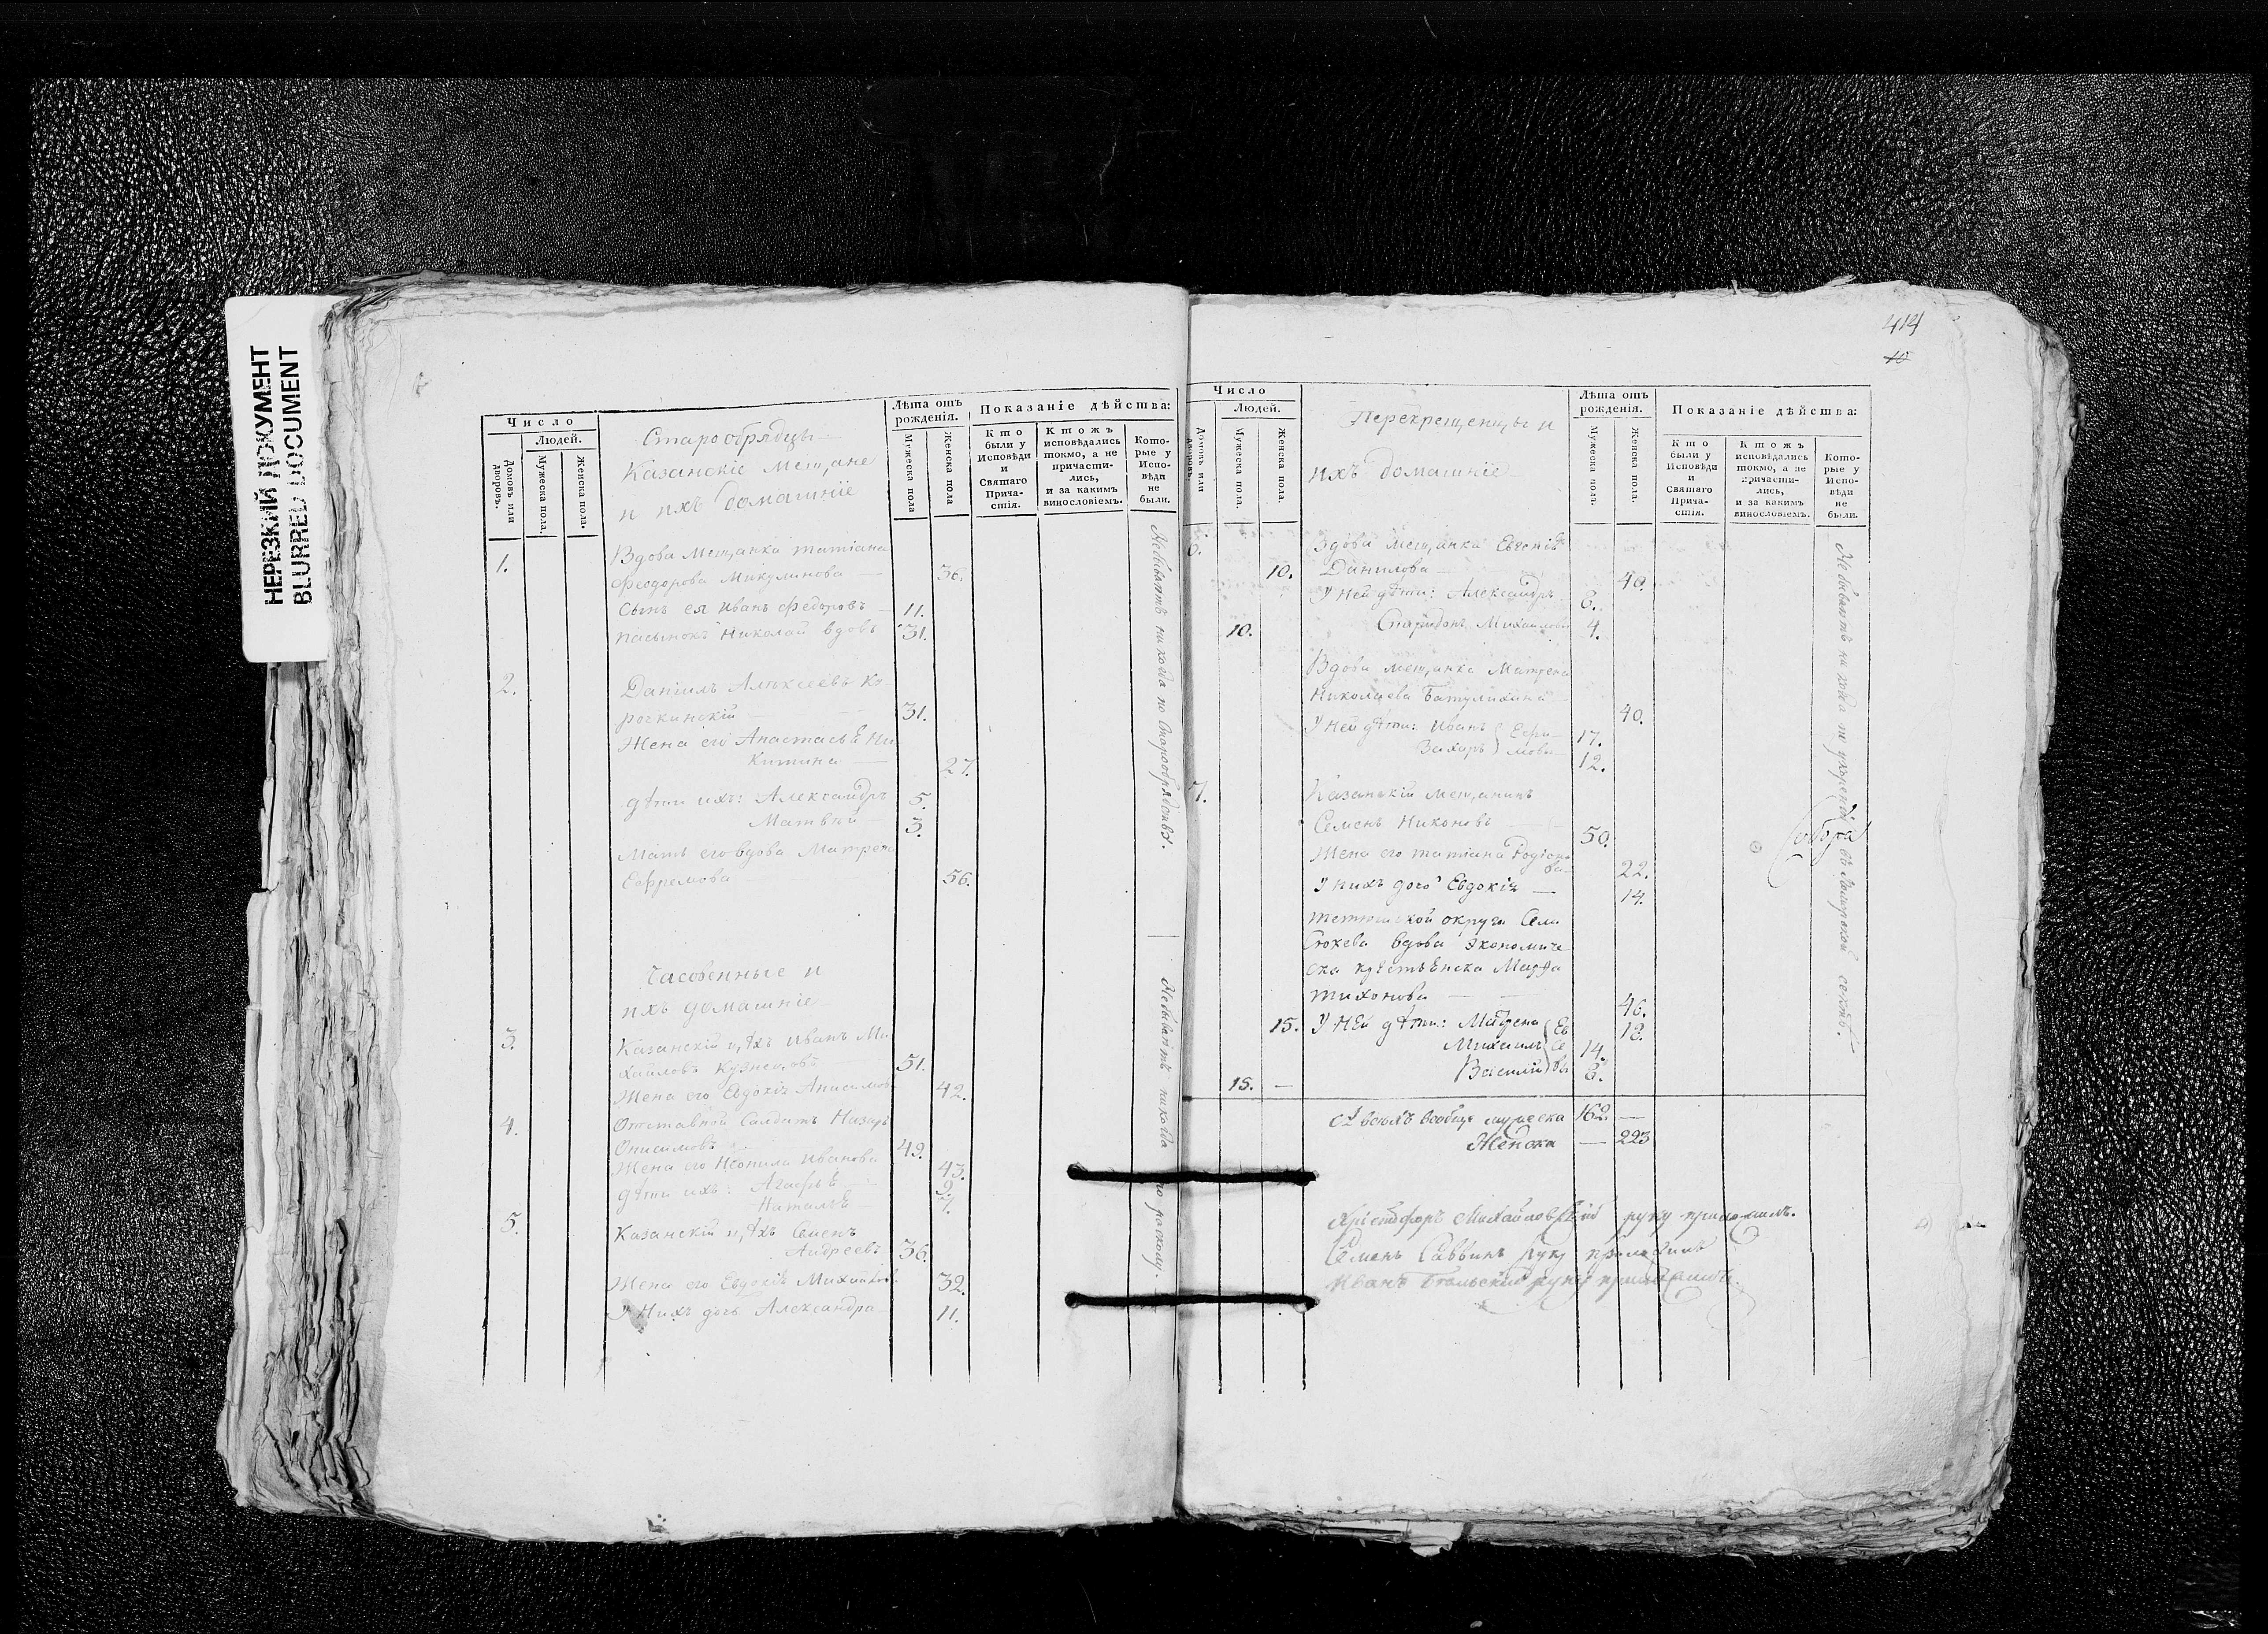 НЕРЕЗКИЙ ДОКУМЕНТ
BLURRED DOCUMENT
Число
Людей.
Домовъ или дворовъ.
Мужеска пола.
Женска пола.
Старообрядцы
Казанскіе мещане
и ихъ домашніе
Лѣта отъ рожденія.
Мужеска пола
Женска пола
Показаніе дѣйства:
Кто были у Исповѣди и Святаго Причастія.
Ктожъ исповѣдались токмо, а не причастились, и за какимъ винословіемъ.
Которые у Исповѣди не были.
1. Вдова мещанка татіана
Феодорова Микулинова — 36.
Сынъ ея Иванъ Федоровъ — 11.
пасынокъ Николай вдовъ 31.
2. Даніилъ Алексеевъ Ко
рочкинскій — 31.
Жена его Анастасьѣ Ни
китина — 27.
дѣти ихъ: Александръ 5.
Матвѣй — 3.
Мать его вдова Матрена
Ефремова — 56.
Небываютъ никогда по Старообрядству.
Часовенные и
ихъ домашніе
3. Казанскій цѣхъ Иванъ Ми
хайловъ Кузнецовъ 51.
Жена его Евдокія Анисимова 42.
4. Отставной Салдатъ Назаръ
Онисимовъ 49.
Жена его Неонила Иванова 43.
дѣти ихъ: Агафьѣ — 9.
Натальѣ — 7.
5. Казанскій цѣхъ Семенъ
Андреевъ 36.
Жена его Евдокіѣ Михайлова 32.
У Нихъ дочь Александра 11.
Небываютъ никогда по расколу.
414
10
Число
Людей.
Домовъ или дворовъ.
Мужеска пола.
Женска пола.
Перекрещенцы и
ихъ домашніе
Лѣта отъ рожденія.
Мужеска пола.
Женска пола.
Показаніе дѣйства:
Кто были у Исповѣди и Святаго Причастія.
Ктожъ исповѣдались токмо, а не причастились, и за какимъ винословіемъ.
Которые у Исповѣди не были.
6. Вдова мещанка Евгеніѣ
10. Данилова — 40.
У Ней дѣти: Александръ 6.
10. Спиридонъ Михайловы 4.
Вдова мещанка Матрена
Николаева 40.
У Ней дѣти: Иванъ Ефи 17.
Захаръ мовы 12.
7. Казанскій мещанинъ
Семенъ Никоновъ — 50.
Жена его татіана Родіоно
ва 22.
У нихъ дочь Евдокіѧ — 14.
округи Села
вдова экономиче
ска Марфа
тихонова — 46.
15. У Ней дѣти: Матрена 18.
Михаилъ 14.
15. — Василій 8.
Небываютъ никогда секты.
Собора
вообще мужеска 162. —
Женска — 223
Христофоръ Михайловскій руку приложилъ.
Семенъ Саввинъ руку приложилъ
Иванъ руку приложилъ.